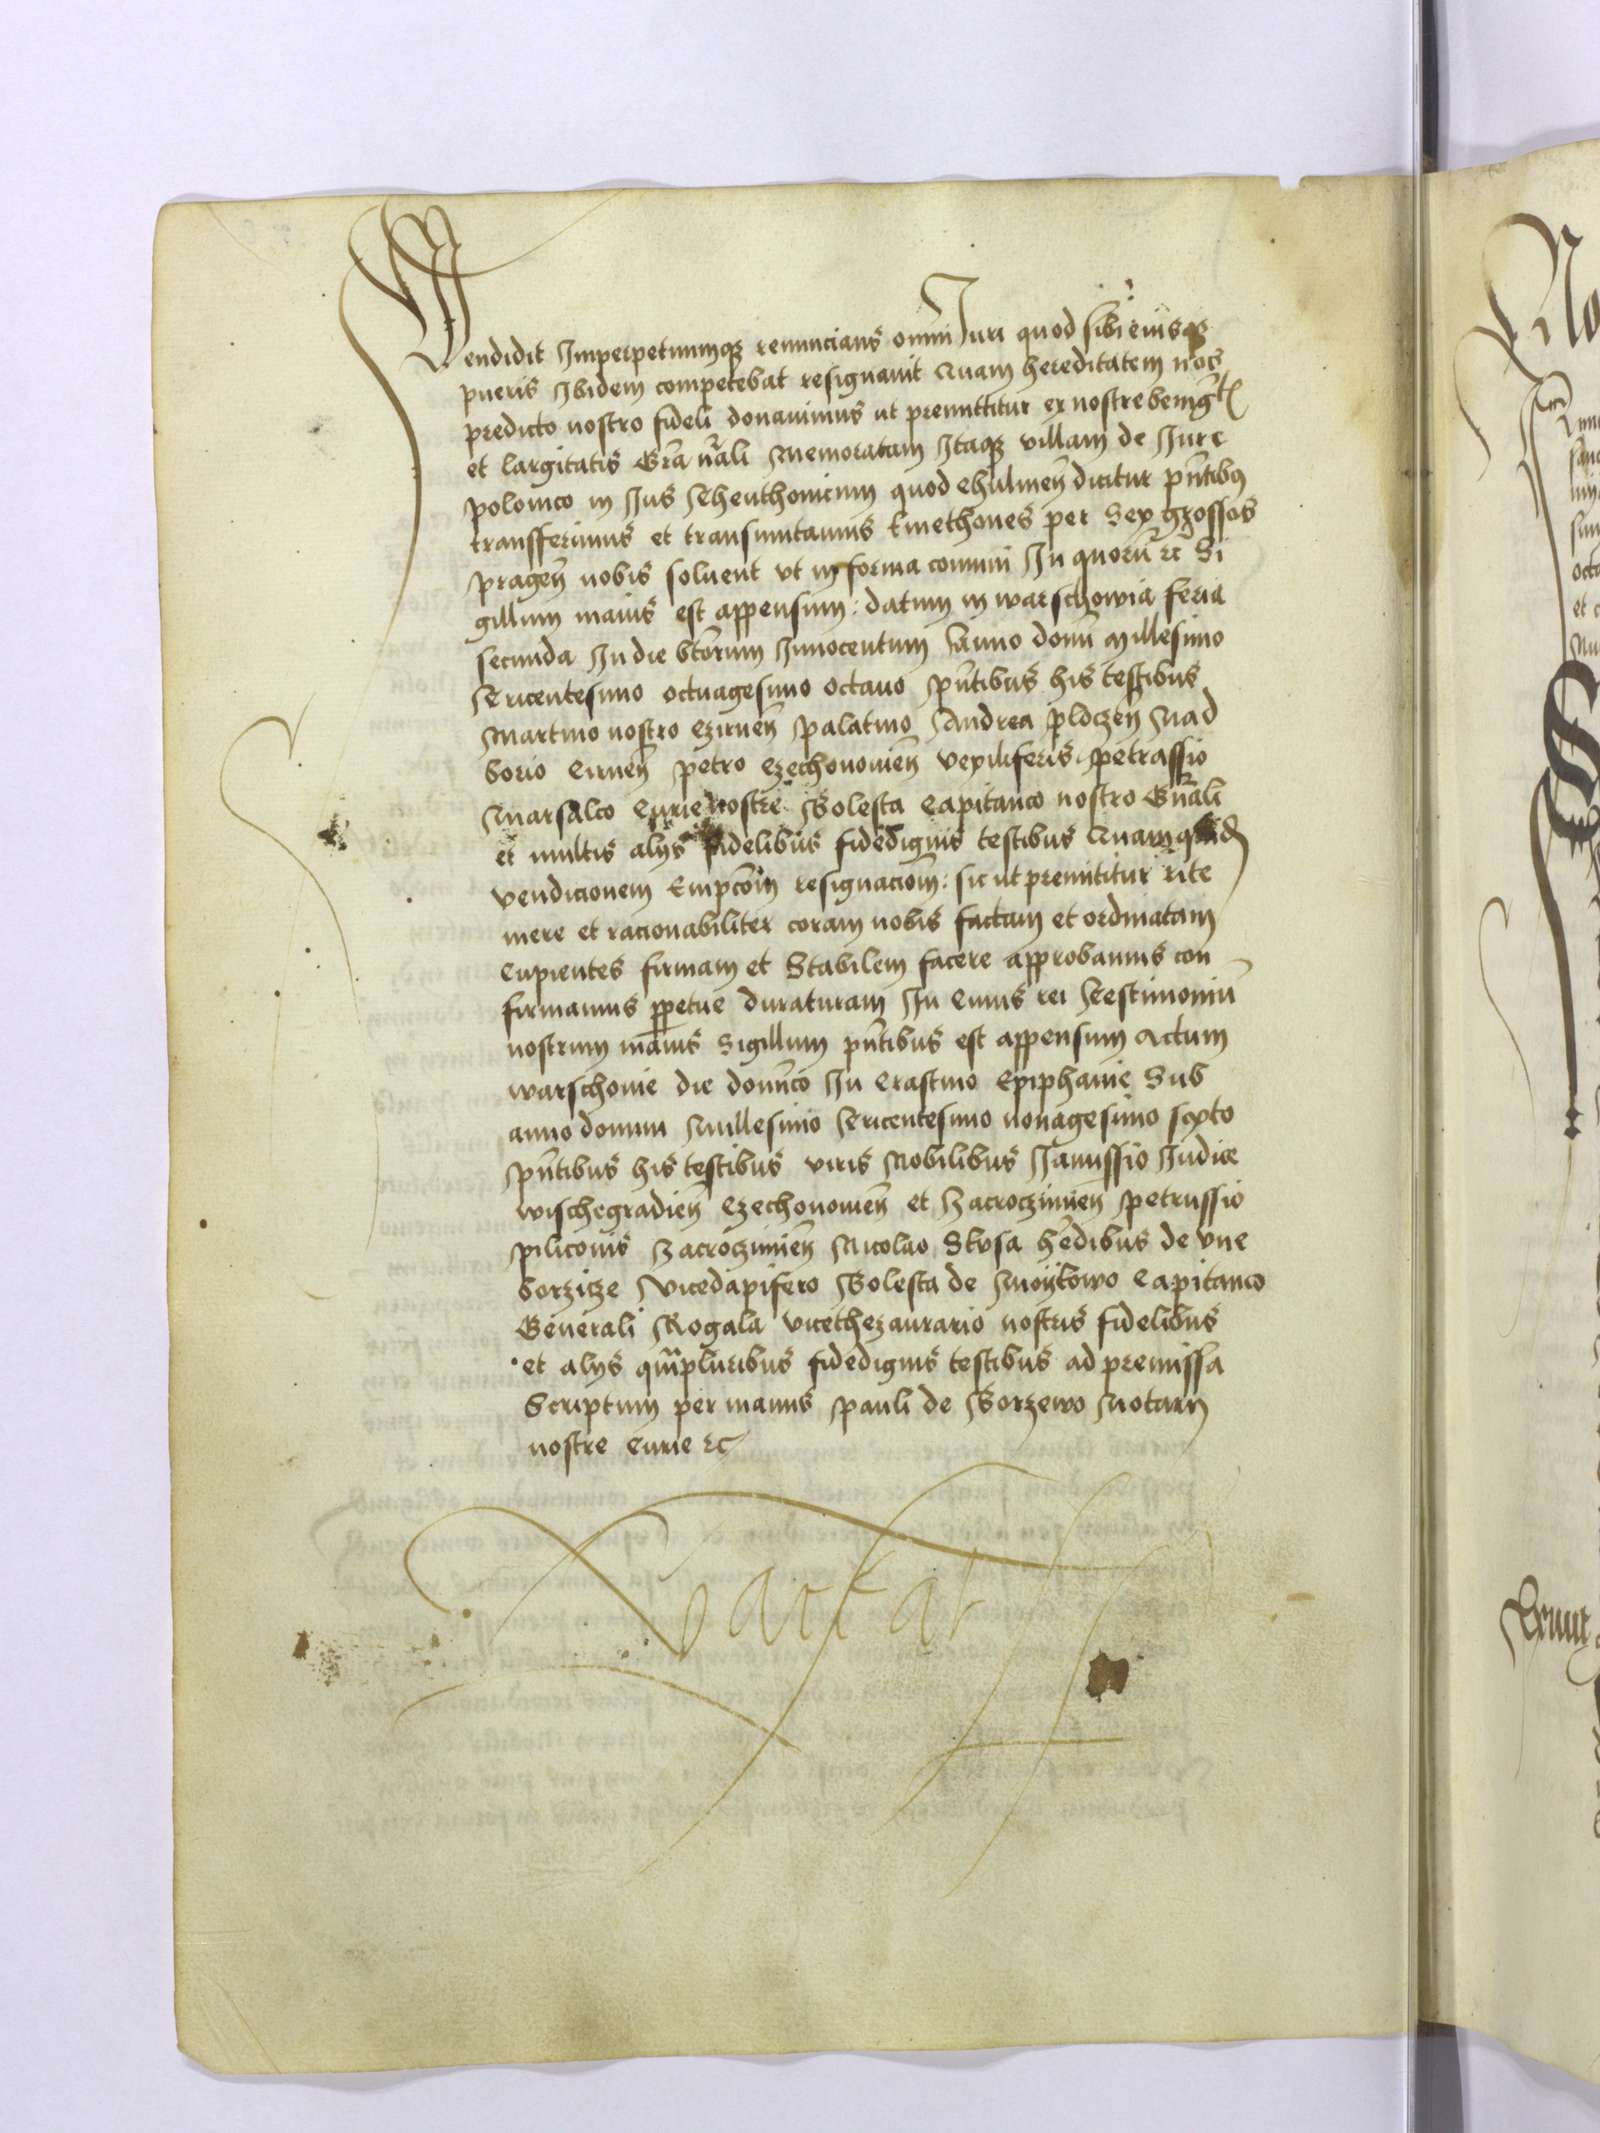 Vendidit Jmperpetuumqz renuncians omni Juri quod sibi eiusqz
pueris Jbidem competebat resignauit Quam hereditatem nos
predicto nostro fideli donauimus ut premittitur ex nostre
et largitatis gra Memoratam Jtaqz villam de Jure
polonico in Jus Thewthonicum quod Chulmen dicitur pntibus
transferimus et transmutamus kmethones per Sex grossos
pragen nobis soluent vt in forma comuni Jn quoru rc Si
gillum maius est appensum: datum in warschowia feria
secunda Jn die btorum Jnnocentum Anno domi Millesimo
Tricentesimo octuagesimo octauo pntibus his testibus
Martino nostro Czirnen palatino Andrea ploczen Nad
borio Cirnen petro Czechonouien vexiliferis petrassio
Marsalco Curie nostre Golesta Capitaneo nostro Gnrali
et multis alys fidelibus fidedignis testibus Quam
vendicionem Empcom resignaciom: sic ut premittitur rite
mere et racionabiliter coram nobis factam et ordinatam
Cupientes firmam et Stabilem facere approbamus con
firmamus ppetue duraturam Jn Cuius rei Testimoniu
nostrum maius Sigillum pntibus est appensum Actum
warschouie die domco Jn Crastino Epiphanie Sub
anno domini Millesimo Tricentesimo nonagesimo sexto
pntibus his testibus viris Nobilibus Janussio Judice
wischegradien Czechonouien et Zacroczimien petrussio
piliconis Zacroczimien Nicolao hedibus de vne
borzitze Vicedapifero Golesta de Capitaneo
Generali Rogala vicethezaurario nostris fidelibus
et alys qmpluribus fidedignis testibus ad premissa
Scriptum per manus pauli de Gorzewo Notarii
nostre Curie rc